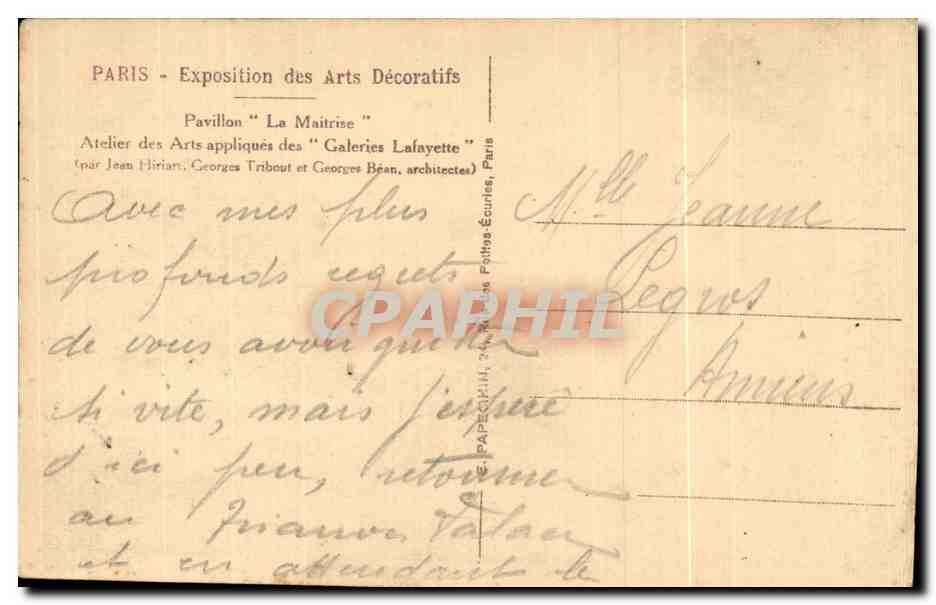 PARIS - Exposition des Arts Décoratifs
Pavillon " La Maitrise "
Atelier des Arts appliqués des " Galeries Lafayette "
(par Jean Hiriart, Georges Tribout et Georges Béan, architectes)
Avec mes plus
profonds regrets
de vous avoir quitter
si vite, mais j'espère
d'ici peu, retourner
au Trianon Palace
et en attendant le
E. PAPEGHIN, des Petites-Écuries, Paris
CPARPHIL
Mlle Jeanne
Legros
Amiens